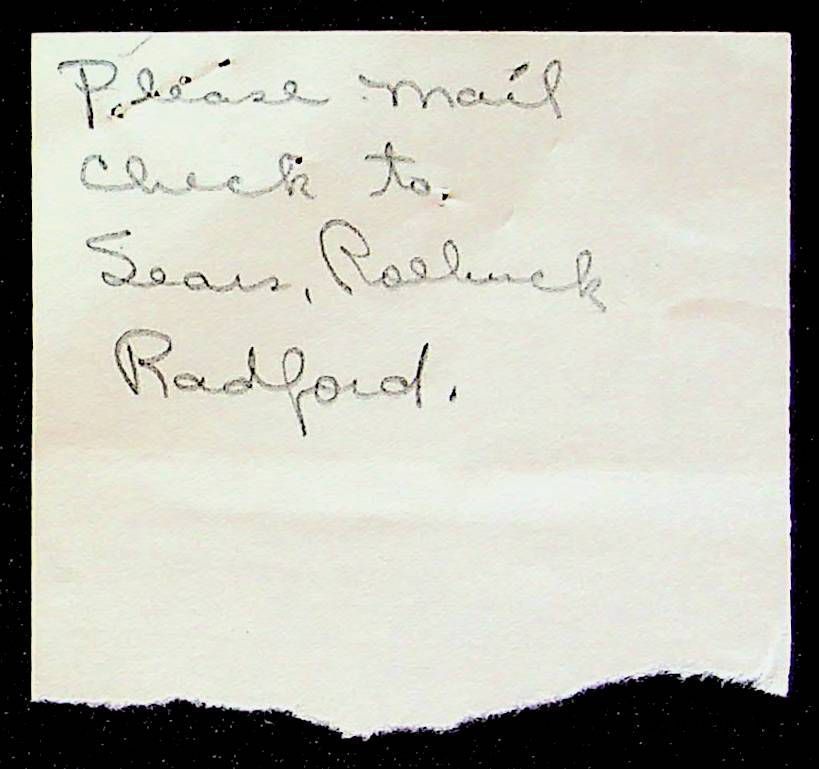 Please mail
Check to.
Sears, Roebuck
Radford.